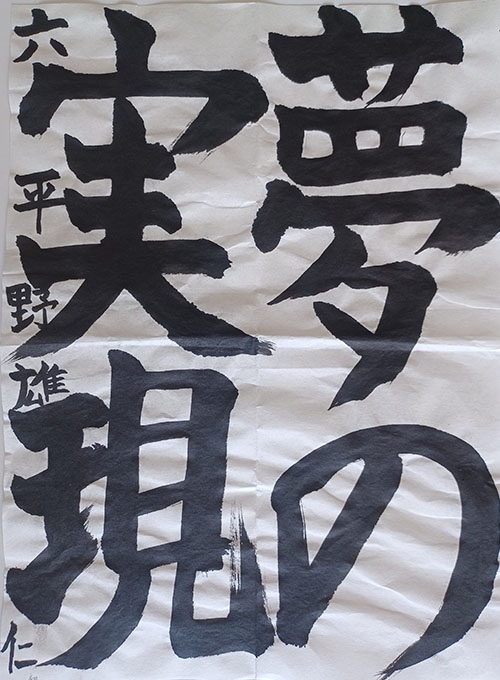 夢の
実現
六 平野雄仁